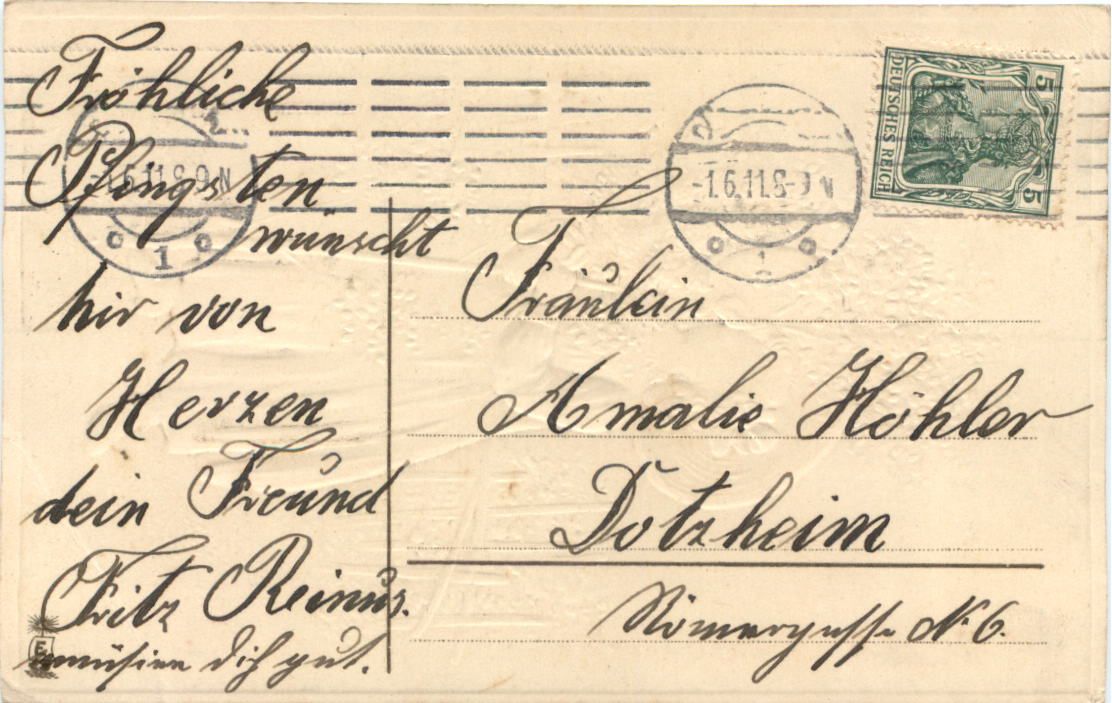 Fröhliche
Pfingsten
wünscht
hir von
Herzen
dein Freund
Fritz Reinus.
amüsiere dich gut.
-1.6.11.8-9 N
1
-1.6.11.8-9 N
1
DEUTSCHES REICH
5
5
Fräulein
Amalie Höhler
Dotzheim
Römergasse N. 6.